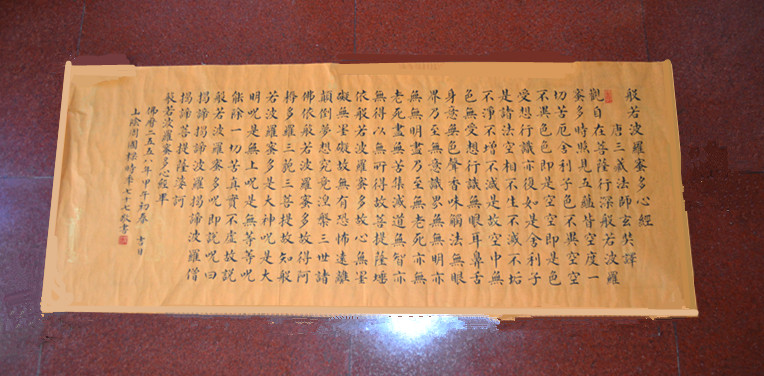 般若波羅蜜多心經
唐三藏法師玄奘譯
觀自在菩薩行深般若波羅
蜜多時照見五蘊皆空度一
切苦厄舍利子色不異空空
不異色色即是空空即是色
受想行識亦復如是舍利子
是諸法空相不生不滅不垢
不淨不增不減是故空中無
色無受想行識無眼耳鼻舌
身意無色聲香味觸法無眼
界乃至無意識界無無明亦
無無明盡乃至無老死亦無
老死盡無苦集滅道無智亦
無得以無所得故菩提薩埵
依般若波羅蜜多故心無罣
礙無罣礙故無有恐怖遠離
顛倒夢想究竟涅槃三世諸
佛依般若波羅蜜多故得阿
耨多羅三藐三菩提故知般
若波羅蜜多是大神呪是大
明呪是無上呪是無等等呪
能除一切苦真實不虛故說
般若波羅蜜多呪即說呪曰
揭諦揭諦波羅揭諦波羅僧
揭諦菩提薩婆訶
般若波羅蜜多心經畢
佛曆二五五八年甲午初春吉日
上周國樑時年七十七敬書